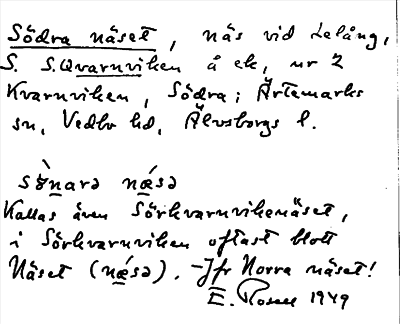 Södra näset, näs vid Lelång,
S. S.Qvarnviken å ek, nr 2
Kvarnviken, Södra; Ärtemarks
sn, Vedbo hd, Älvsborgs l.
sø̀narə nǽsə
Kallas även Sörkvarnvikenäset,
i Sörkvarnviken oftast blott
Näset (nǽsə). Jfr Norra näset!
E. Rosell 1949